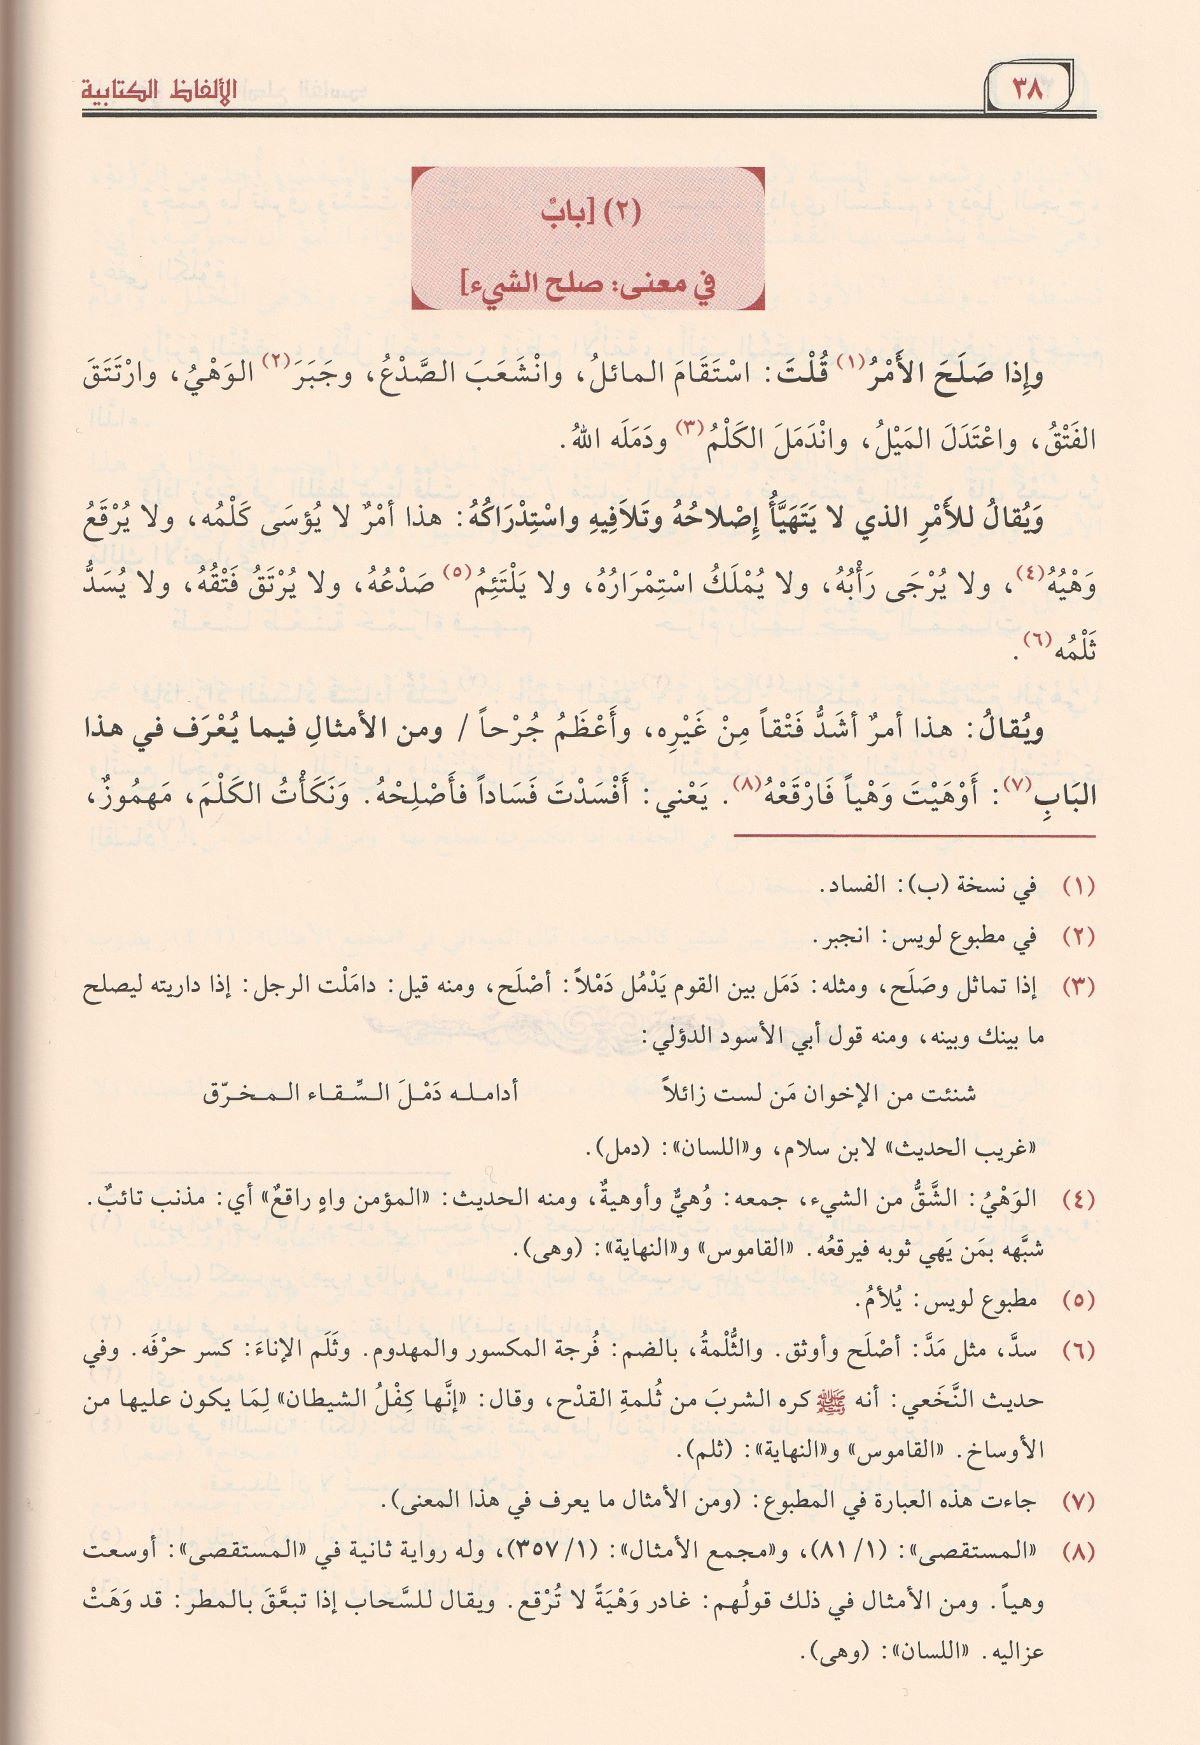 ٣٨
الألفاظ الكتابية
(٢) [بابٌ
في معنى: صلح الشيء]
وإِذا صَلَحَ الأَمْرُ(١) قُلْتَ: اسْتَقَامَ المائلُ، وانْشَعَبَ الصَّدْعُ، وجَبَرَ(٢) الوَهْيُ، وارْتَتَقَ
الفَتْقُ، واعْتَدَلَ المَيْلُ، وانْدَمَلَ الكَلْمُ(٣) ودَمَلَه اللهُ.
وَيُقالُ للأَمْرِ الذي لا يَتَهَيَّأُ إِصْلاحُهُ وتَلاَفِيهِ واسْتِدْرَاكُهُ: هذا أمْرٌ لا يُؤسَى كَلْمُه، ولا يُرْقَعُ
وَهْيُهُ(٤)، ولا يُرْجَى رَأْبُهُ، ولا يُمْلَكُ اسْتِمْرَارُهُ، ولا يَلْتَئِمُ(٥) صَدْعُهُ، ولا يُرْتَقُ فَتْقُهُ، ولا يُسَدُّ
ثَلْمُه(٦).
ويُقالُ: هذا أمرٌ أشَدُّ فَتْقاً مِنْ غَيْرِه، وأَعْظَمُ جُرْحاً / ومن الأمثالِ فيما يُعْرَف في هذا
البَابِ(٧): أَوْهَيْتَ وَهْياً فَارْقَعْهُ(٨). يَعْني: أَفْسَدْتَ فَسَاداً فأَصْلِحْهُ. وَنَكَأْتُ الكَلْمَ، مَهمُوزٌ،
(١) في نسخة (ب): الفساد.
(٢) في مطبوع لويس: انجبر.
(٣) إذا تماثل وصَلَح، ومثله: دَمَل بين القوم يَدْمُل دَمْلاً: أصْلَح، ومنه قيل: دامَلْت الرجل: إذا داريته ليصلح
ما بينك وبينه، ومنه قول أبي الأسود الدؤلي:
شنئت من الإخوان مَن لست زائلاً أدامله دَمْلَ السِّقاء المخرّق
«غريب الحديث» لابن سلام، و«اللسان»: (دمل).
(٤) الوَهْيُ: الشَّقُّ من الشيء، جمعه: وُهِيٌّ وأوهيةٌ، ومنه الحديث: «المؤمن واهٍ راقعٌ» أي: مذنب تائبٌ.
شبَّهه بمَن يَهي ثوبه فيرقعُه. «القاموس» و«النهاية»: (وهى).
(٥) مطبوع لويس: يُلأمُ.
(٦) سدَّ، مثل مَدَّ: أصْلَح وأوثق. والثُّلْمةُ، بالضم: فُرجة المكسور والمهدوم. وثَلَم الإناءَ: كسر حرْفَه. وفي
حديث النَّخَعي: أنه ﷺ كره الشربَ من ثُلمةِ القدْح، وقال: «إنَّها كِفْلُ الشيطان» لِمَا يكون عليها من
الأوساخ. «القاموس» و«النهاية»: (ثلم).
(٧) جاءت هذه العبارة في المطبوع: (ومن الأمثال ما يعرف في هذا المعنى).
(٨) «المستقصى»: (١/ ٨١)، و«مجمع الأمثال»: (١/ ٣٥٧)، وله رواية ثانية في «المستقصى»: أوسعت
وهياً. ومن الأمثال في ذلك قولُهم: غادر وَهْيَةً لا تُرْقع. ويقال للسَّحاب إذا تبعَّقَ بالمطر: قد وَهَتْ
عزاليه. «اللسان»: (وهى).